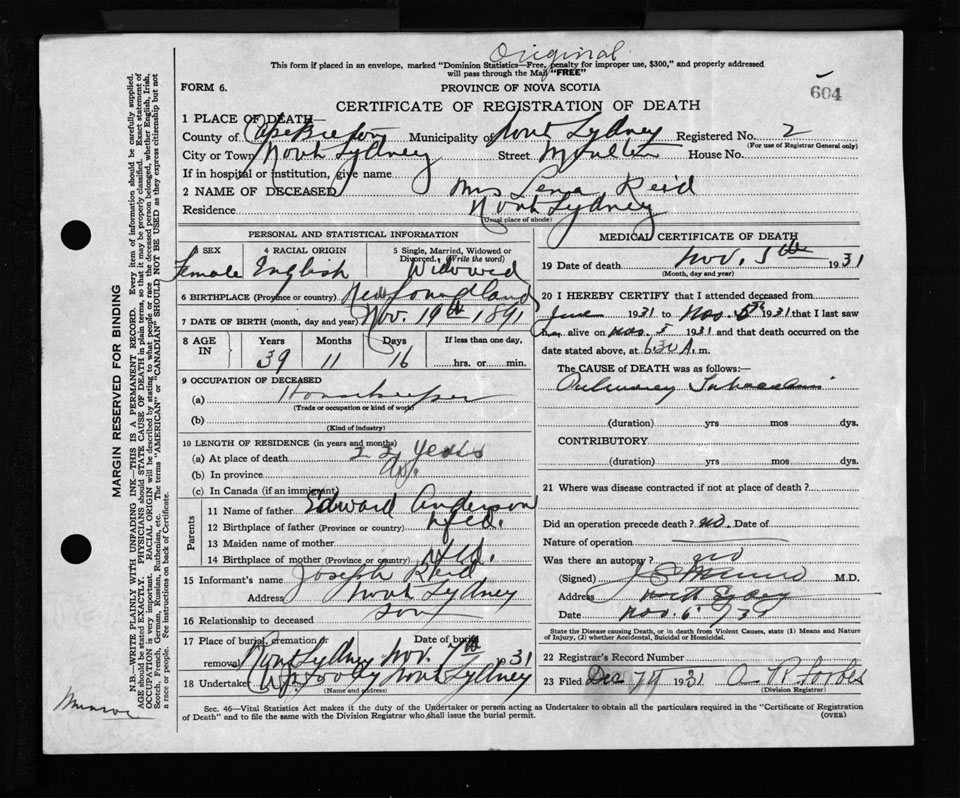 Original
This form if placed in an envelope, marked "Dominion Statistics—Free, penalty for improper use, $300," and properly addressed
will pass through the Mail "FREE"
FORM 6.
PROVINCE OF NOVA SCOTIA
604
CERTIFICATE OF REGISTRATION OF DEATH
1 PLACE OF DEATH—
County of Cape Breton Municipality of North Sydney Registered No. 2
(For use of Registrar General only)
City or Town North Sydney Street House No.
If in hospital or institution, give name
2 NAME OF DECEASED Mrs Lena Reid
Residence North Sydney
(Usual place of abode)
PERSONAL AND STATISTICAL INFORMATION
3 SEX 4 RACIAL ORIGIN 5 Single, Married, Widowed or Divorced. (Write the word)
Female English Widowed
6 BIRTHPLACE (Province or country) Newfoundland
7 DATE OF BIRTH (month, day and year) Nov. 19th 1891
8 AGE IN Years Months Days If less than one day,
39 11 16 hrs. or min.
9 OCCUPATION OF DECEASED
(a) Housekeeper
(Trade or occupation or kind of work)
(b)
(Kind of industry)
10 LENGTH OF RESIDENCE (in years and months)
(a) At place of death 22 years
(b) In province
(c) In Canada (if an immigrant)
Parents
11 Name of father Edward Anderson
12 Birthplace of father (Province or country) Nfld.
13 Maiden name of mother
14 Birthplace of mother (Province or country) Nfld.
15 Informant's name Joseph Reid
Address North Sydney
16 Relationship to deceased son
17 Place of burial, cremation or removal North Sydney Date of burial Nov. 7th 1931
18 Undertaker North Sydney
(Name and address)
MEDICAL CERTIFICATE OF DEATH
19 Date of death Nov. 5th 1931
(Month, day and year)
20 I HEREBY CERTIFY that I attended deceased from
June 1931 to Nov. 5th 1931 that I last saw
her alive on Nov. 5 1931 and that death occurred on
date stated above, at 6.30 A. m.
The CAUSE OF DEATH was as follows:—
Pulmonary Tuberculosis
(duration) yrs mos. dys.
CONTRIBUTORY
(duration) yrs. mos. dys.
21 Where was disease contracted if not at place of death?
Did an operation precede death? no. Date of
Nature of operation
Was there an autopsy? no
(Signed) Munro M.D.
Address North Sydney
Date Nov. 6 1931
State the Disease causing Death, or in death from Violent Causes, state (1) Means and Nature
of Injury, (2) whether Accidental, Suicidal or Homicidal.
22 Registrar's Record Number
23 Filed Dec 7 1931
(Division Registrar)
Sec. 46—Vital Statistics Act makes it the duty of the Undertaker or person acting as Undertaker to obtain all the particulars required in the "Certificate of Registration
of Death" and to file the same with the Division Registrar who shall issue the burial permit.
(OVER)
MARGIN RESERVED FOR BINDING
N.B.—WRITE PLAINLY WITH UNFADING INK—THIS IS A PERMANENT RECORD. Every item of information should be carefully supplied.
AGE should be stated EXACTLY. PHYSICIANS should STATE CAUSE OF DEATH in plain terms, so that it may be properly classified. Exact statement of
OCCUPATION is very important. RACIAL ORIGIN will be described by stating to what people or race the deceased person belonged, whether English, Irish,
Scotch, French, German, Russian, Ruthenian, etc. The terms "AMERICAN" or "CANADIAN" SHOULD NOT BE USED as they express citizenship but not
a race or people. See instructions on back of Certificate.
Munroe